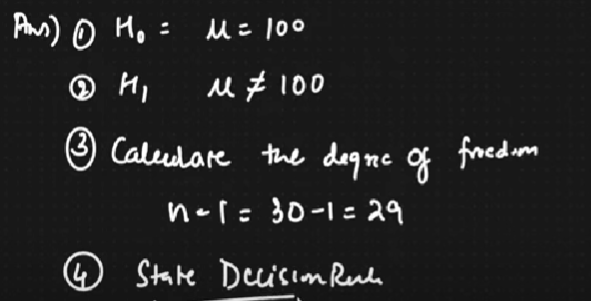 Ans) ① H₀ = μ = 100
② H₁ μ ≠ 100
③ Calculate the degree of freedom
n - 1 = 30 - 1 = 29
④ State Decision Rule